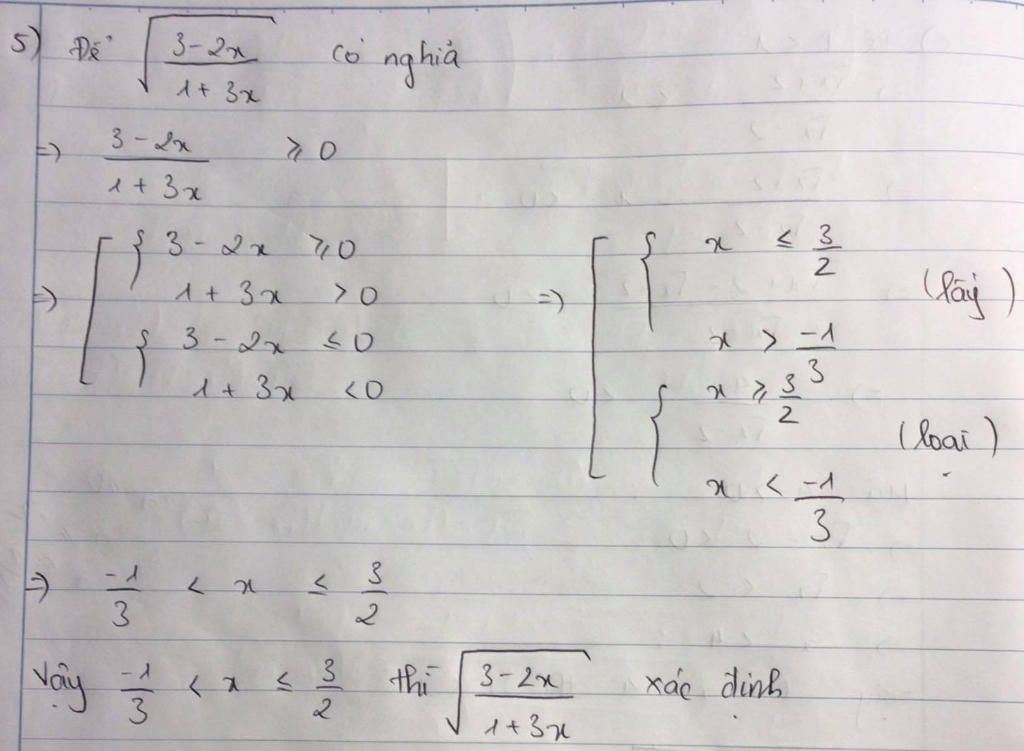 5) Để √((3-2x)/(1+3x)) có nghiả
=> (3-2x)/(1+3x) ⩾ 0
=> [ { 3-2x ⩾ 0
1+3x > 0
{ 3-2x ≤ 0
1+3x < 0
=> [ { x ≤ 3/2
x > -1/3
(lấy)
{ x ⩾ 3/2
x < -1/3
(loại)
=> -1/3 < x ≤ 3/2
Vậy -1/3 < x ≤ 3/2 thì √((3-2x)/(1+3x)) xác định